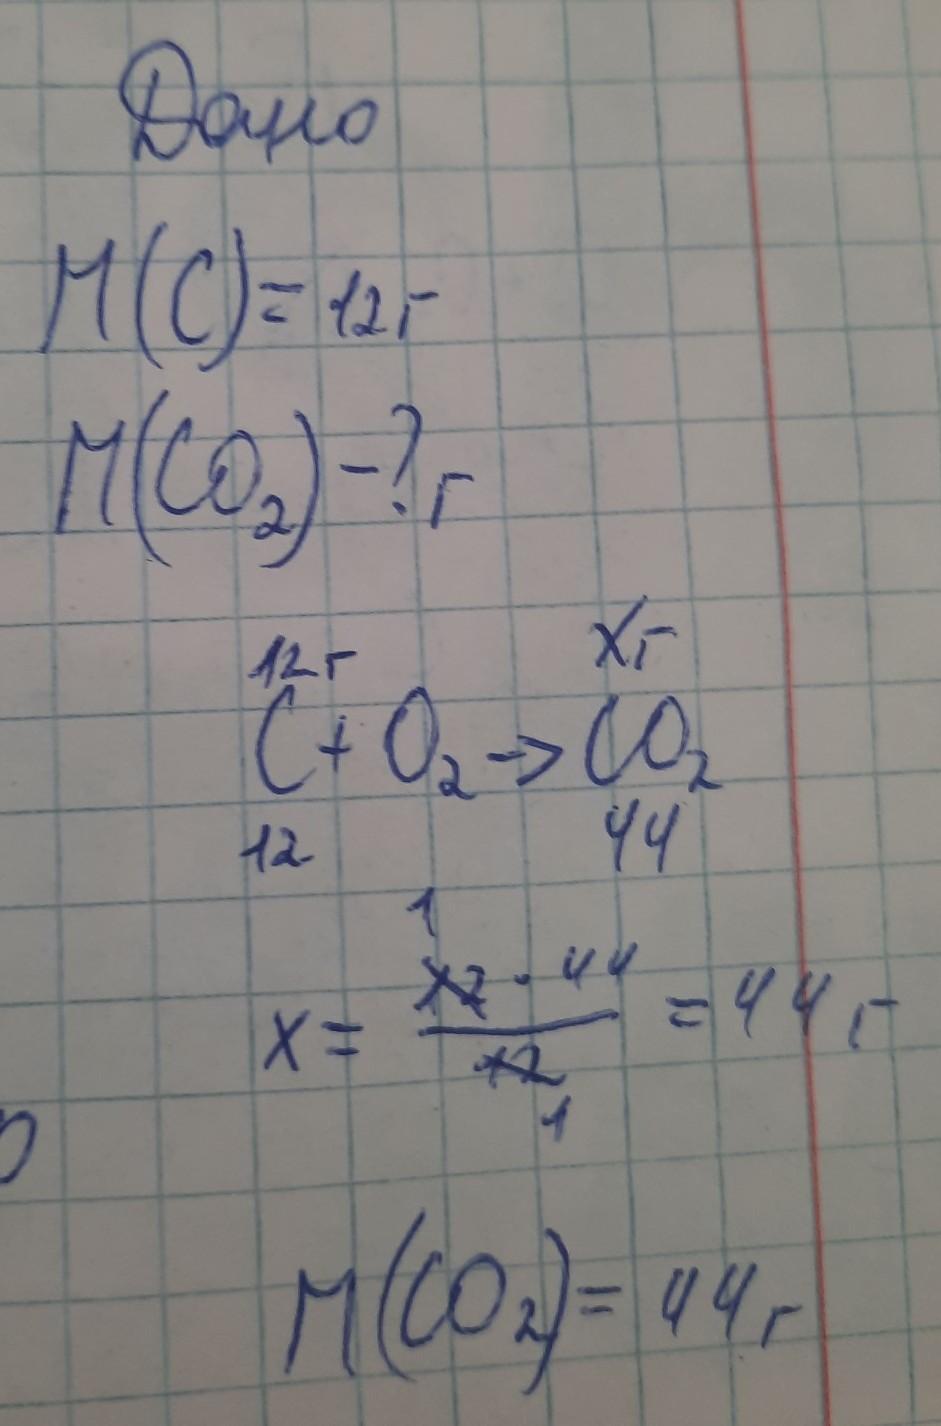 Дано
M(C)= 12г
M(CO₂) -? г
12г xг
C + O₂ -> CO₂
12 44
1
x = 12 · 44 / 12 = 44 г
1
M(CO₂) = 44г